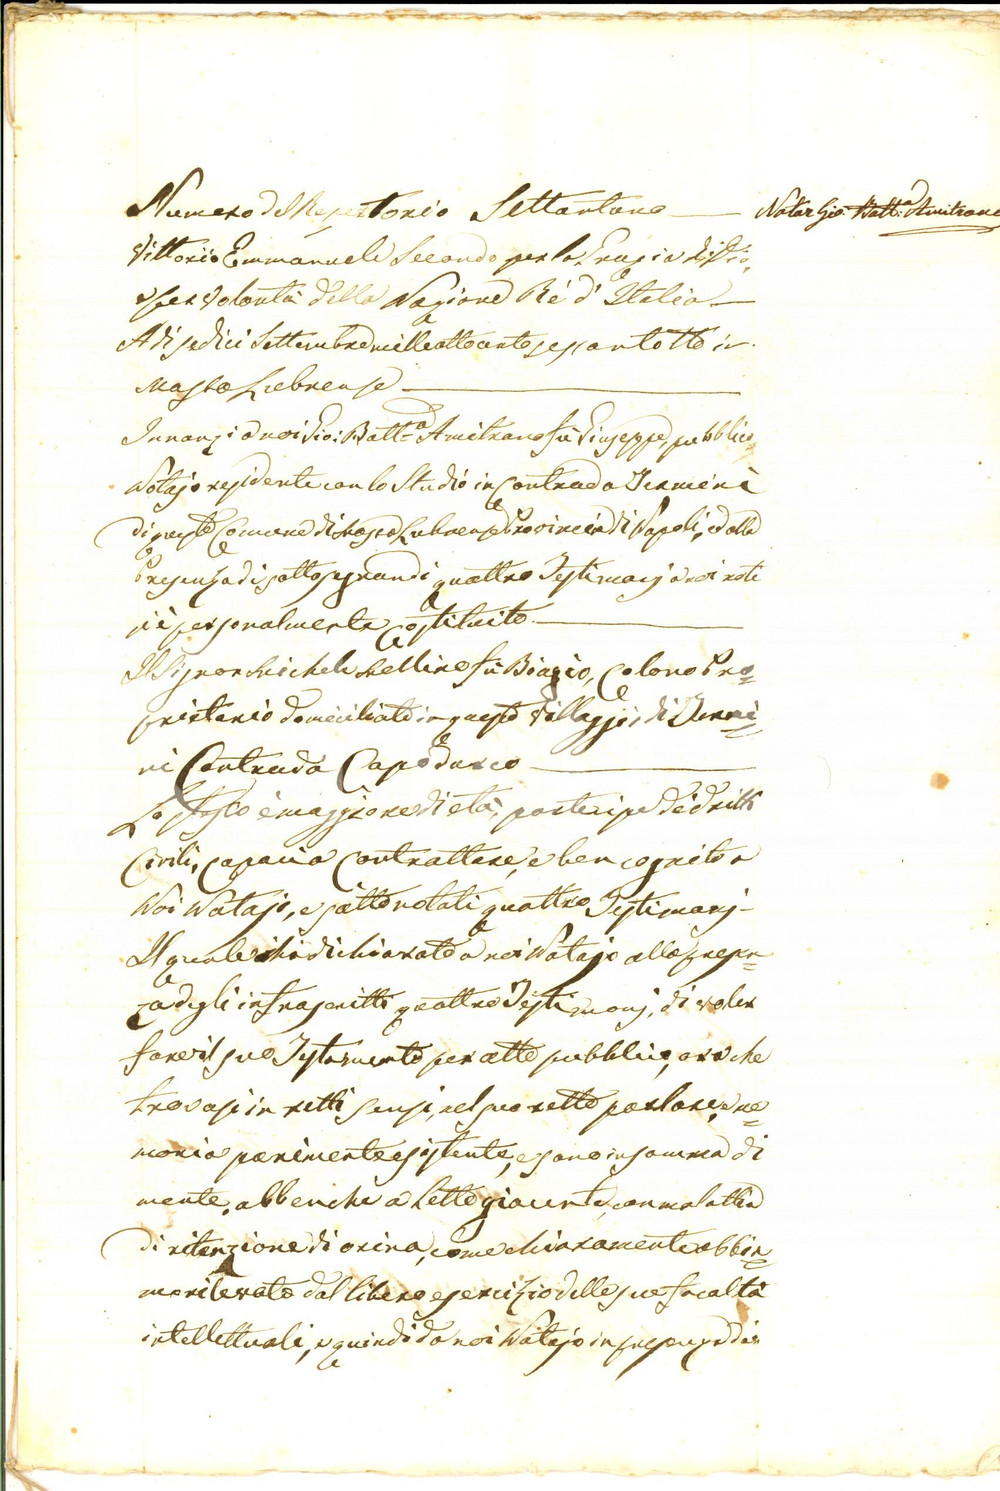 Numero del Repertorio Settantuno
Notar Gio: Batt.a Amitrano
Vittorio Emmanuele Secondo per la Grazia di Dio,
e per volontà della Nazione Ré d'Italia
A dì sedici Settembre mille ottocento sessantotto in
Massa Lubrense
Innanzi a noi Gio: Batt.a Amitrano fù Giuseppe, pubblico
Notajo residente con lo Studio in Contrada Termini
di questo Comune di Massa Lubrense Provincia di Napoli, ed alla
Presenza di sottosegnandi quattro Testimonj a noi noti
si è personalmente Costituito
Il Signor Michele Mellino fù Biagio, Colono Pro=
prietario domiciliato in questo Villaggio di Termi=
ni Contrada Capodurco
Lo stesso è maggiore di età, partecipe de dritti
Civili, capace a Contrattare, e ben cognito a
Noi Notajo, e sottonotati quattro Testimonj
Il quale ci ha dichiarato a noi Notajo alla presen=
za degli infrascritti quattro Testimonj, di voler
fare il suo Testamento per atto pubblico, ora che
trovasi in retti sensi, nel suo retto parlare, me=
moria parimente esistente, e sano in somma di
mente, abbenche a letto giacente, con malattia
di ritenzione di orina, come chiaramente abbia=
mo rilevato dal libero esercizio delle sue facoltà
intellettuali, e quindi da noi Notajo in presenza dei